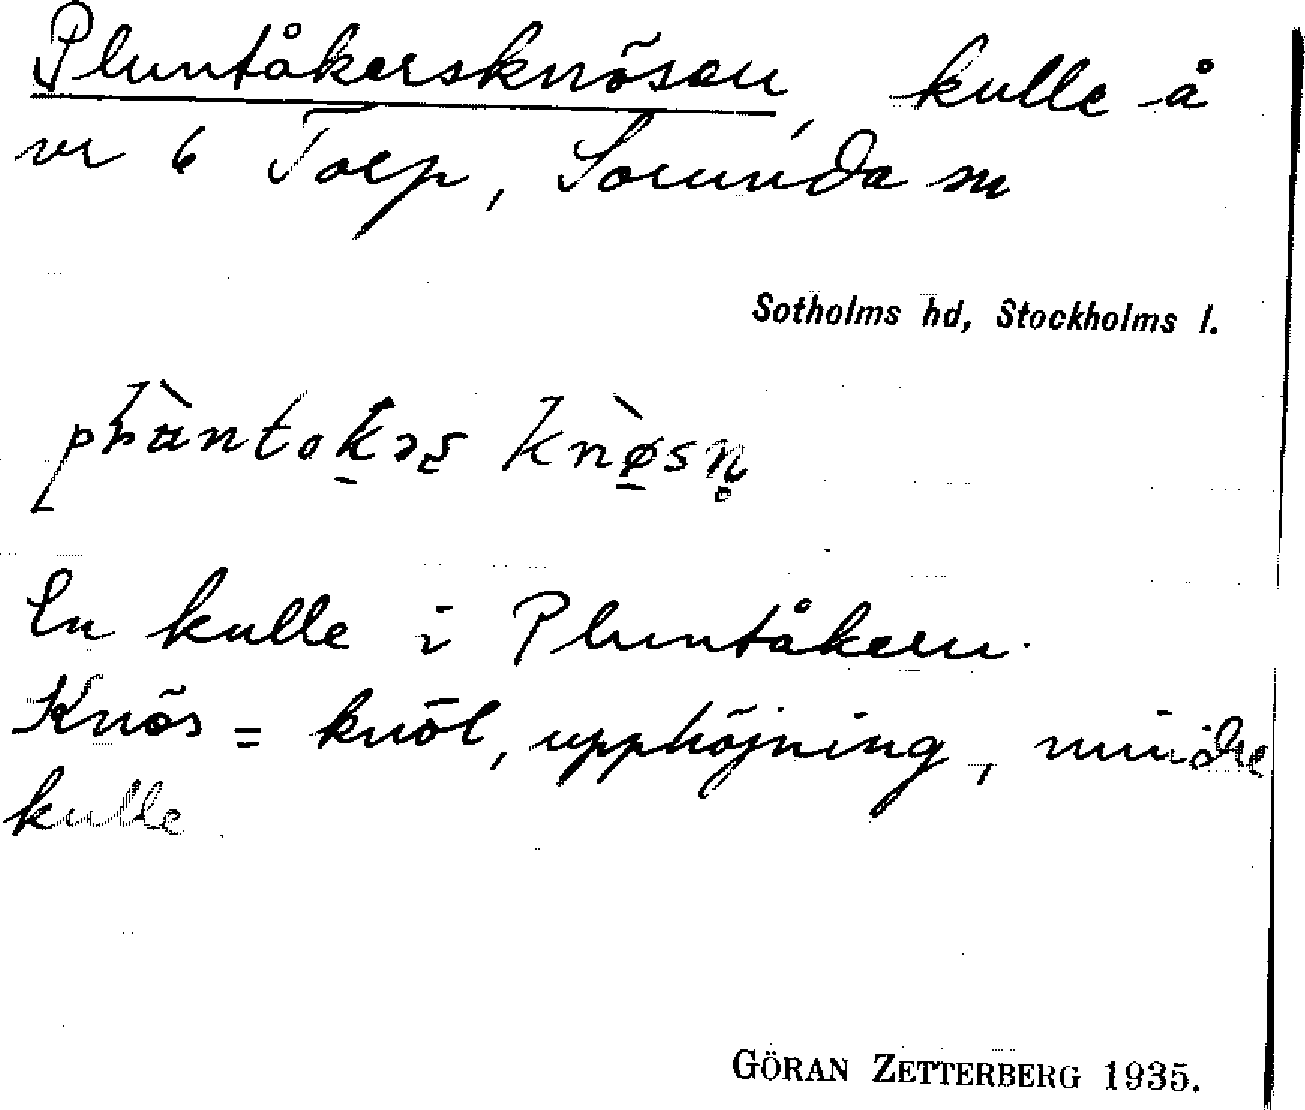 Pluntåkersknösen, kulle å
nr 6 Torp, Sorunda sn
Sotholms hd, Stockholms l.
En kulle i Pluntåkern.
Knös = knöl, upphöjning, mindre
kulle
GÖRAN ZETTERBERG 1935.